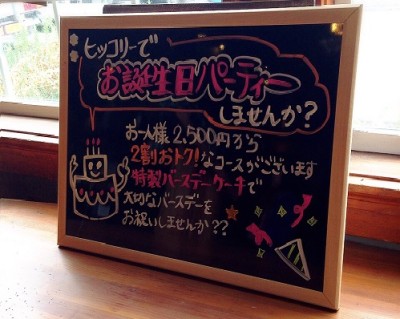 ヒッコリーで
お誕生日パーティー
しませんか?
お一人様2,500円から
2割おトク!なコースがございます
特製バースデーケーキで
大切なバースデーを
お祝いしませんか??